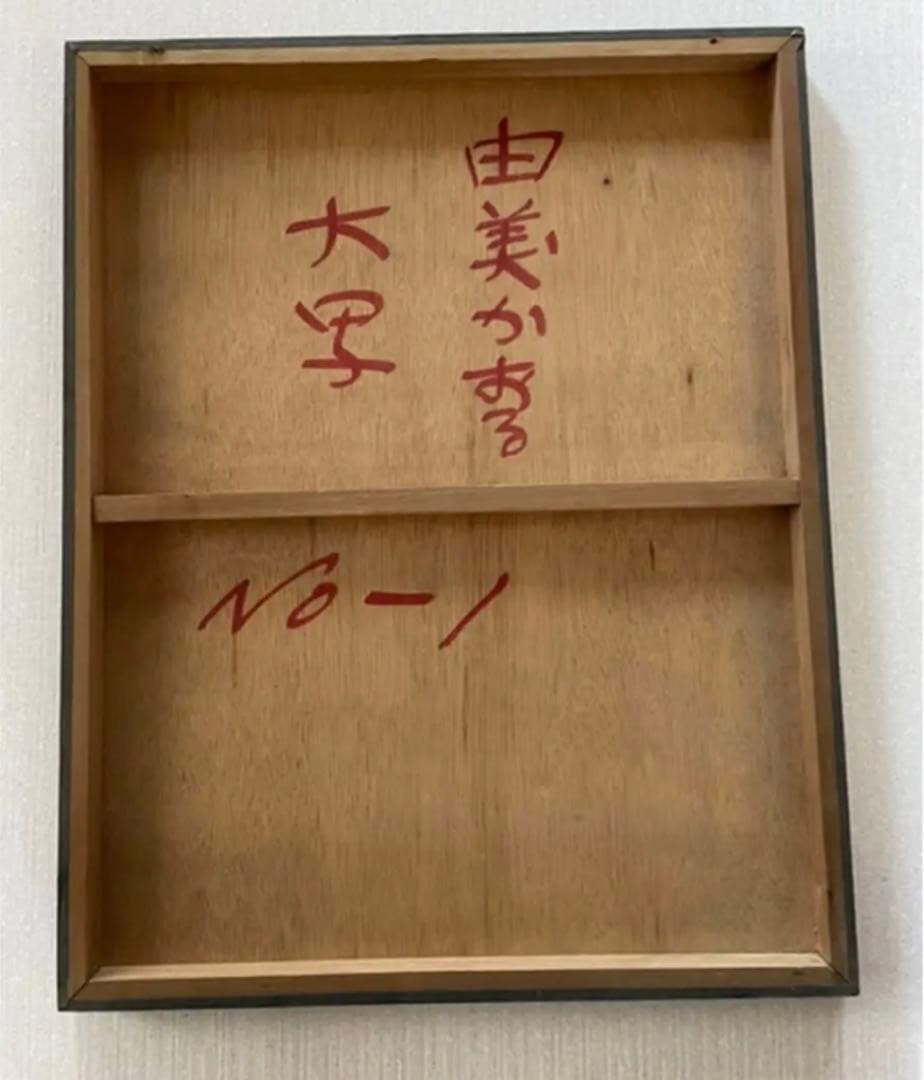 由美かおる
大男
No-1